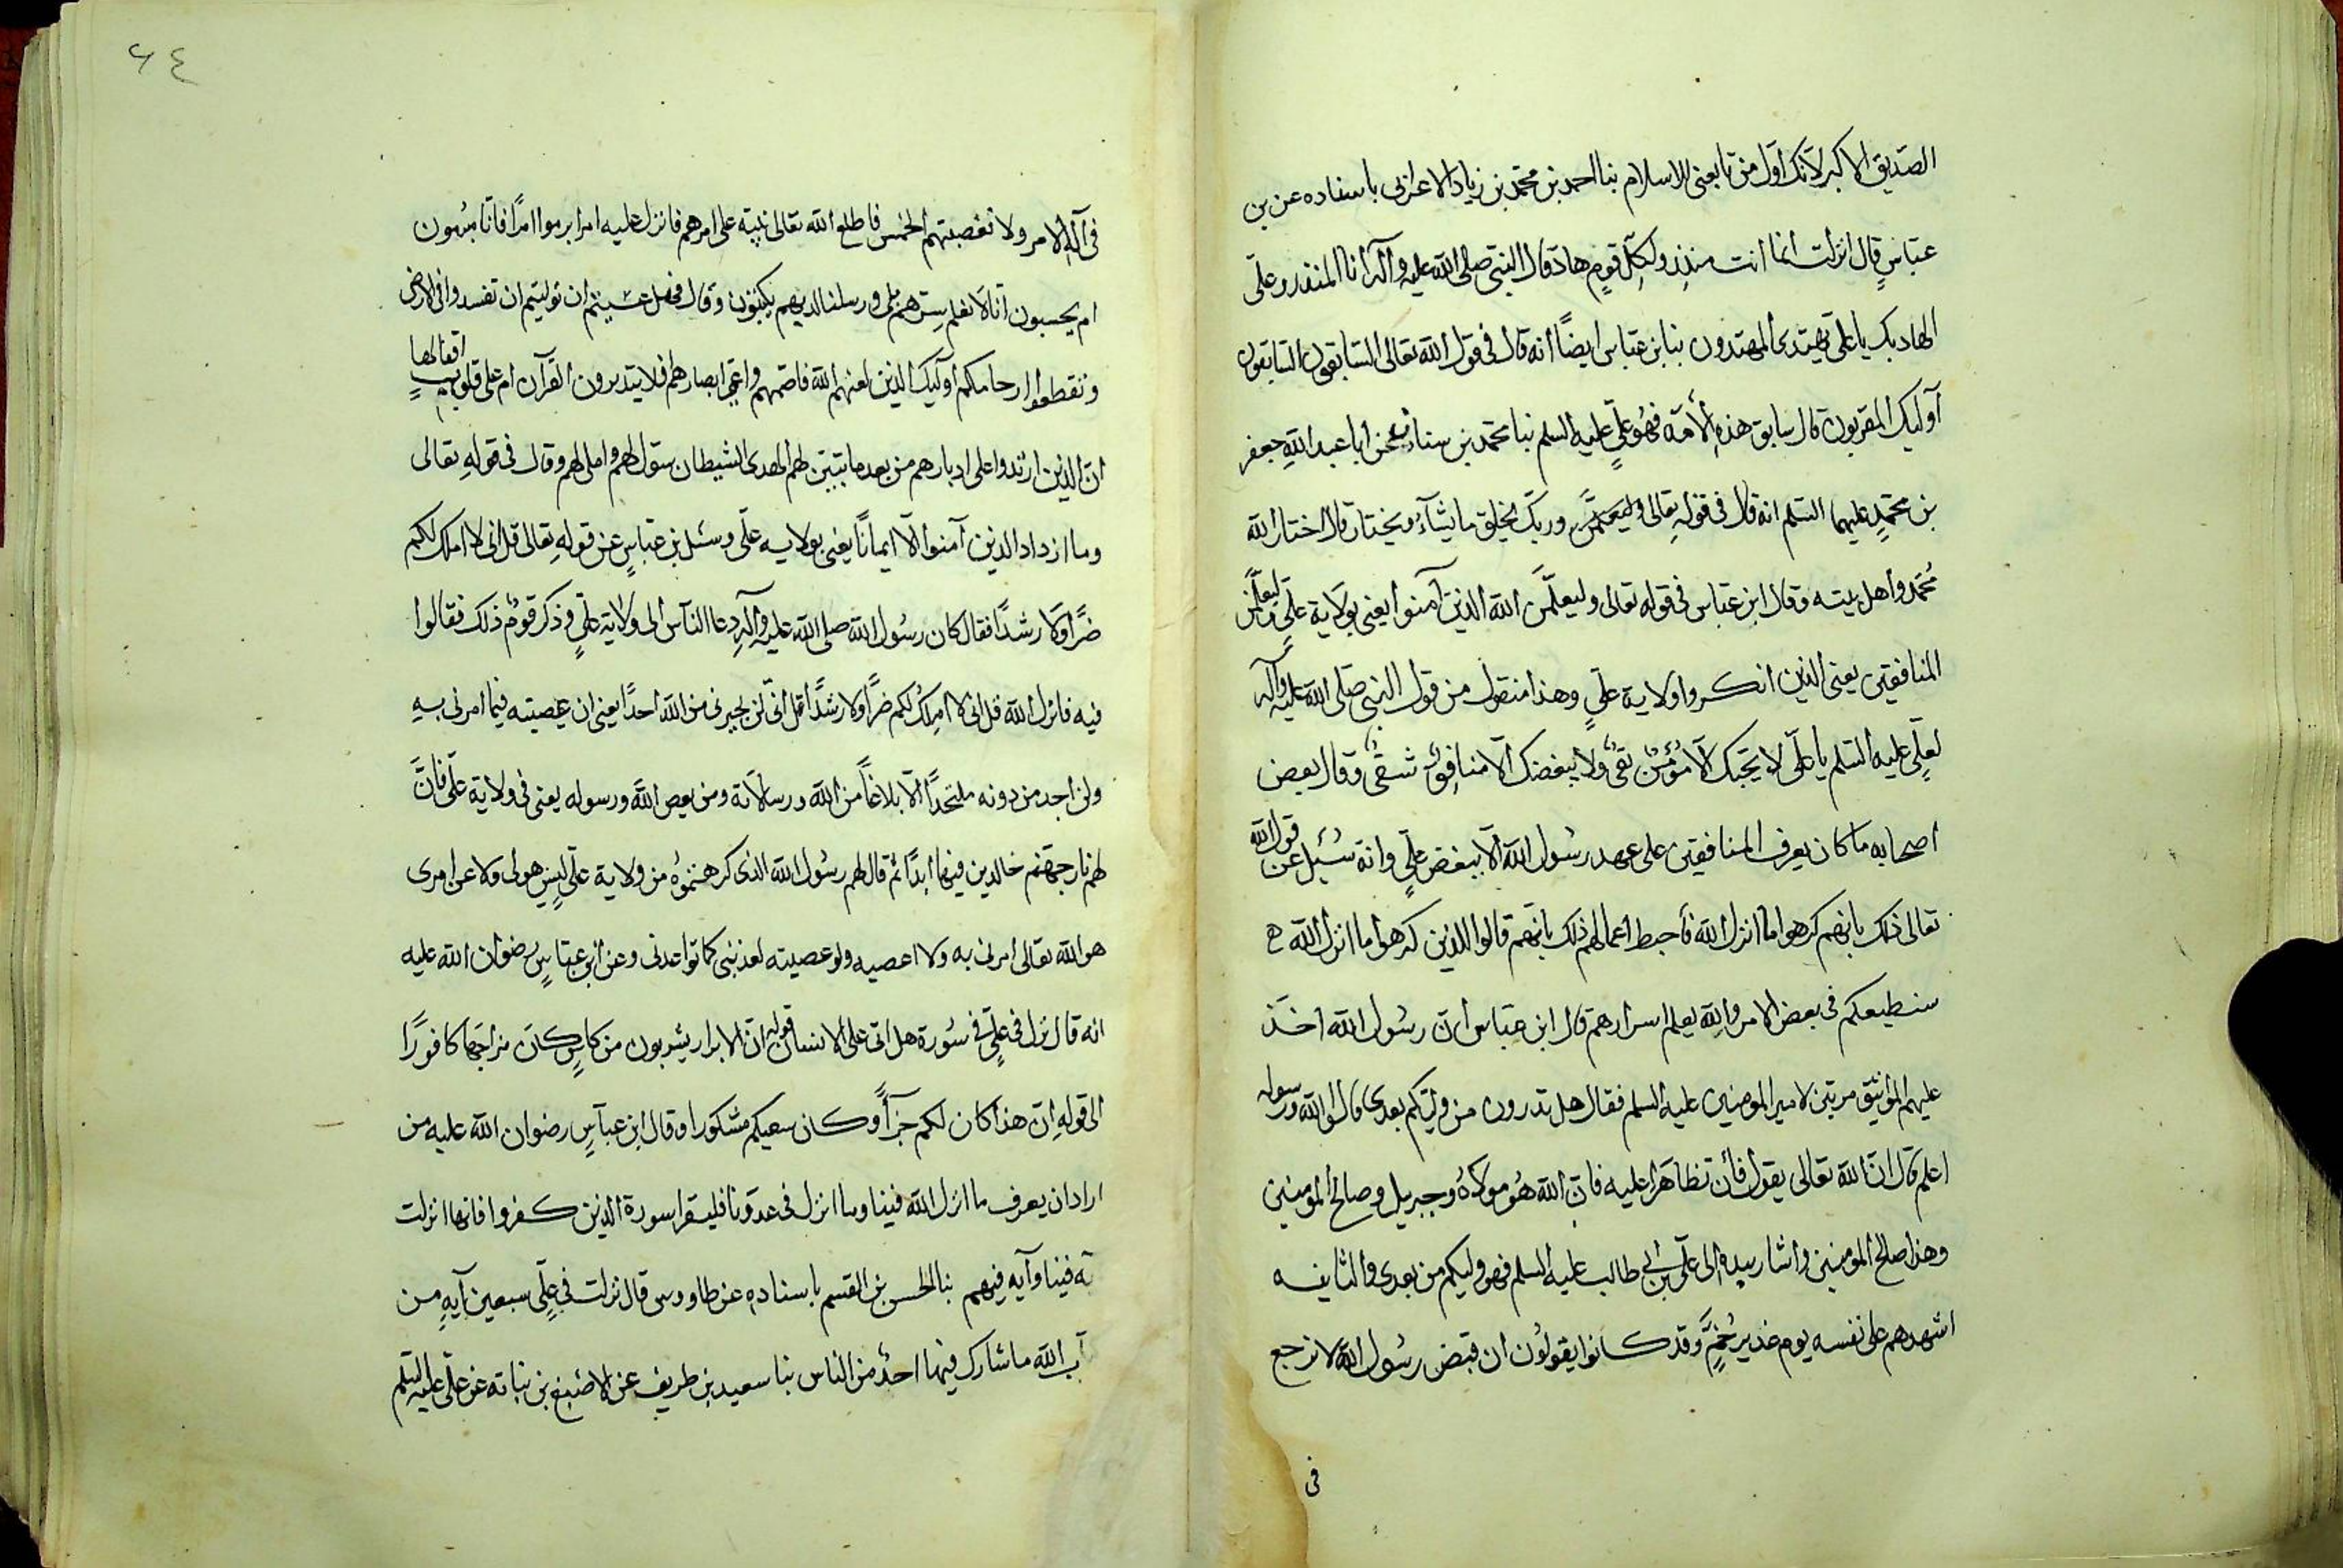 الصديق الاكبر لانك اول من تابعنى للاسلام بنا احمد بن محمد بن زياد الاعرابى باسناده عن بن
عباس قال انزلت انما انت منذر ولكل قوم هاد قال النبى صلى الله عليه وآله انا المنذر وعلى
الهاد بك يا على يهتدى المهتدون بنا بن عباس ايضًا انه قال فى قول الله تعالى السابقون السابقون
اولئك المقربون قال سابق هذه الأمة فهو على عليه السلم بنا محمد بن سنان عن ابا عبد الله جعفر
بن محمد عليهما السلم انه قال فى قوله تعالى وربك يخلق ما يشآء ويختار قال اختار الله
محمد واهل بيته وقال ابن عباس فى قوله تعالى وليعلمن الله الذين آمنوا يعنى بولاية علي وليعلمن
المنافقين يعنى الذين انكروا ولاية علي وهذا منقول من قول النبى صلى الله عليه وآله
لعلى عليه السلم يا على لا يحبك الا مؤمن تقى ولا يبغضك الا منافق شقى وقال بعض
اصحابه ما كان يعرف المنافقين على عهد رسول الله الا ببغض علي وانه سئل عن قول الله
تعالى ذلك بانهم كرهوا ما انزل الله فأحبط اعمالهم ذلك بانهم قالوا للذين كرهوا ما انزل الله
سنطيعكم فى بعض الامر والله يعلم اسرارهم قال ابن عباس ان رسول الله اخذ
عليهم المواثيق مرتين لامير المومنين عليه السلم فقال هل تدرون من وليكم بعدى قالوا الله ورسوله
اعلم قال ان الله تعالى يقول فأن تظاهرا عليه فان الله هو مولاه وجبريل وصالح المومنين
وهذا صالح المومنين واشار بيده الى على بن ابي طالب عليه السلم فهو وليكم من بعدى والثانيه
اشهدهم على نفسه يوم غدير خم وقد كانوا يقولون ان قبض رسول الله لا نرجع
فى
٦٤
فى آله الامر ولا نغصبتهم الخمس فاطلع الله تعالى نبيه على امرهم فانزل عليه ام ابرموا امرًا فانا مبرمون
ام يحسبون انا لا نعلم سرهم بلى ورسلنا لديهم يكتبون وقال فهل عسيتم ان توليتم ان تفسدوا فى الارض
وتقطعوا ارحامكم اوليك الذين لعنهم الله فاصمهم واعمى ابصارهم افلا يتدبرون القرآن ام على قلوب اقفالها
ان الذين ارتدوا على ادبارهم من بعد ما تبين لهم الهدى الشيطان سول لهم واملى لهم وقال فى قوله تعالى
وما ازداد الذين آمنوا الا ايمانًا يعنى بولايه على وسئل بن عباس عن قوله تعالى قل انى لا املك لكم
ضرًا ولا رشدًا فقال كان رسول الله صلى الله عليه وآله دعا الناس الى ولاية علي وذكر قوم ذلك فقالوا
فيه فانزل الله قل انى لا املك لكم ضرًا ولا رشدًا قل انى لن يجيرنى من الله احدًا يعنى ان عصيته فيما امرنى به
ولن اجد من دونه ملتحدًا الا بلاغًا من الله ورسالاته ومن يعص الله ورسوله يعنى فى ولاية على فان
لهم نار جهنم خالدين فيها ابدًا ثم قال لهم رسول الله الذى كرهتموه من ولاية على ليس هو لى ولا عن امرى
هو الله تعالى امرنى به ولا اعصيه ولو عصيته لعذبنى كما تواعدنى وعن ابن عباس رضوان الله عليه
انه قال نزل فى علي فى سورة هل اتى على الانسان قوله ان الابرار يشربون من كاس كان مزاجها كافورًا
الى قوله ان هذا كان لكم جزآءً وكان سعيكم مشكورا وقال ابن عباس رضوان الله عليه من
اراد ان يعرف ما انزل الله فينا وما انزل فى عدونا فليقرا سورة الذين كفروا فانها انزلت
فينا وآيه فيهم بنا الحسن بن القسم باسناده عن طاووس قال نزلت فى على سبعين آيه من
الله ما شارك فيها احد من الناس بنا سعيد بن طريف عن الاصبغ بن نباته عن على عليه السلم